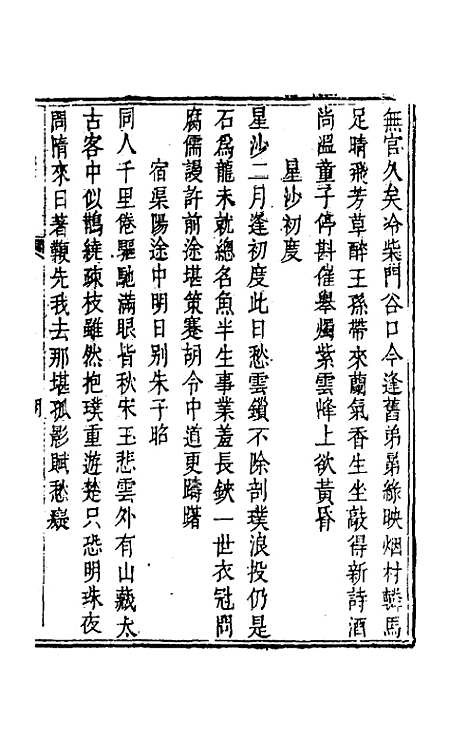 無官久矣冷柴門谷口今逢舊弟昴綠映烟村轔馬
足晴飛芳草醉王孫帶來蘭氣香生坐敲得新詩酒
尚溫童子停斟催舉燭紫雲峰上欲黃昏
星沙初度
星沙二月逢初度此日愁雲鎖不除剖璞浪投仍是
石為龍未就總名魚半生事業羞長鋏一世衣冠問
腐儒謾許前途堪策蹇胡令中道更躊躇
宿渠陽途中明日別朱子昭
同人千里倦驅馳滿眼皆秋宋玉悲雲外有山藏太
古客中似鵲繞疎枝雖然抱璞重遊楚只恐明珠夜
間情來日著鞭先我去那堪孤影賦愁凝